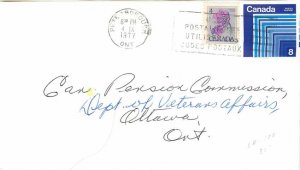 PM
1 IX
1977
ONT
POSTAL
UTILIS
CODES POSTAUX
Canada
8
Can. Pension Commission,
Dept. of Veterans Affairs,
Ottawa,
Ont.